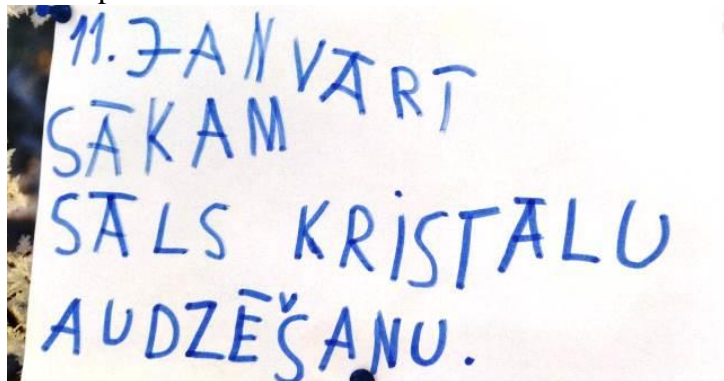 11. JANVĀRĪ
SĀKAM
SĀLS KRISTĀLU
AUDZĒŠANU.